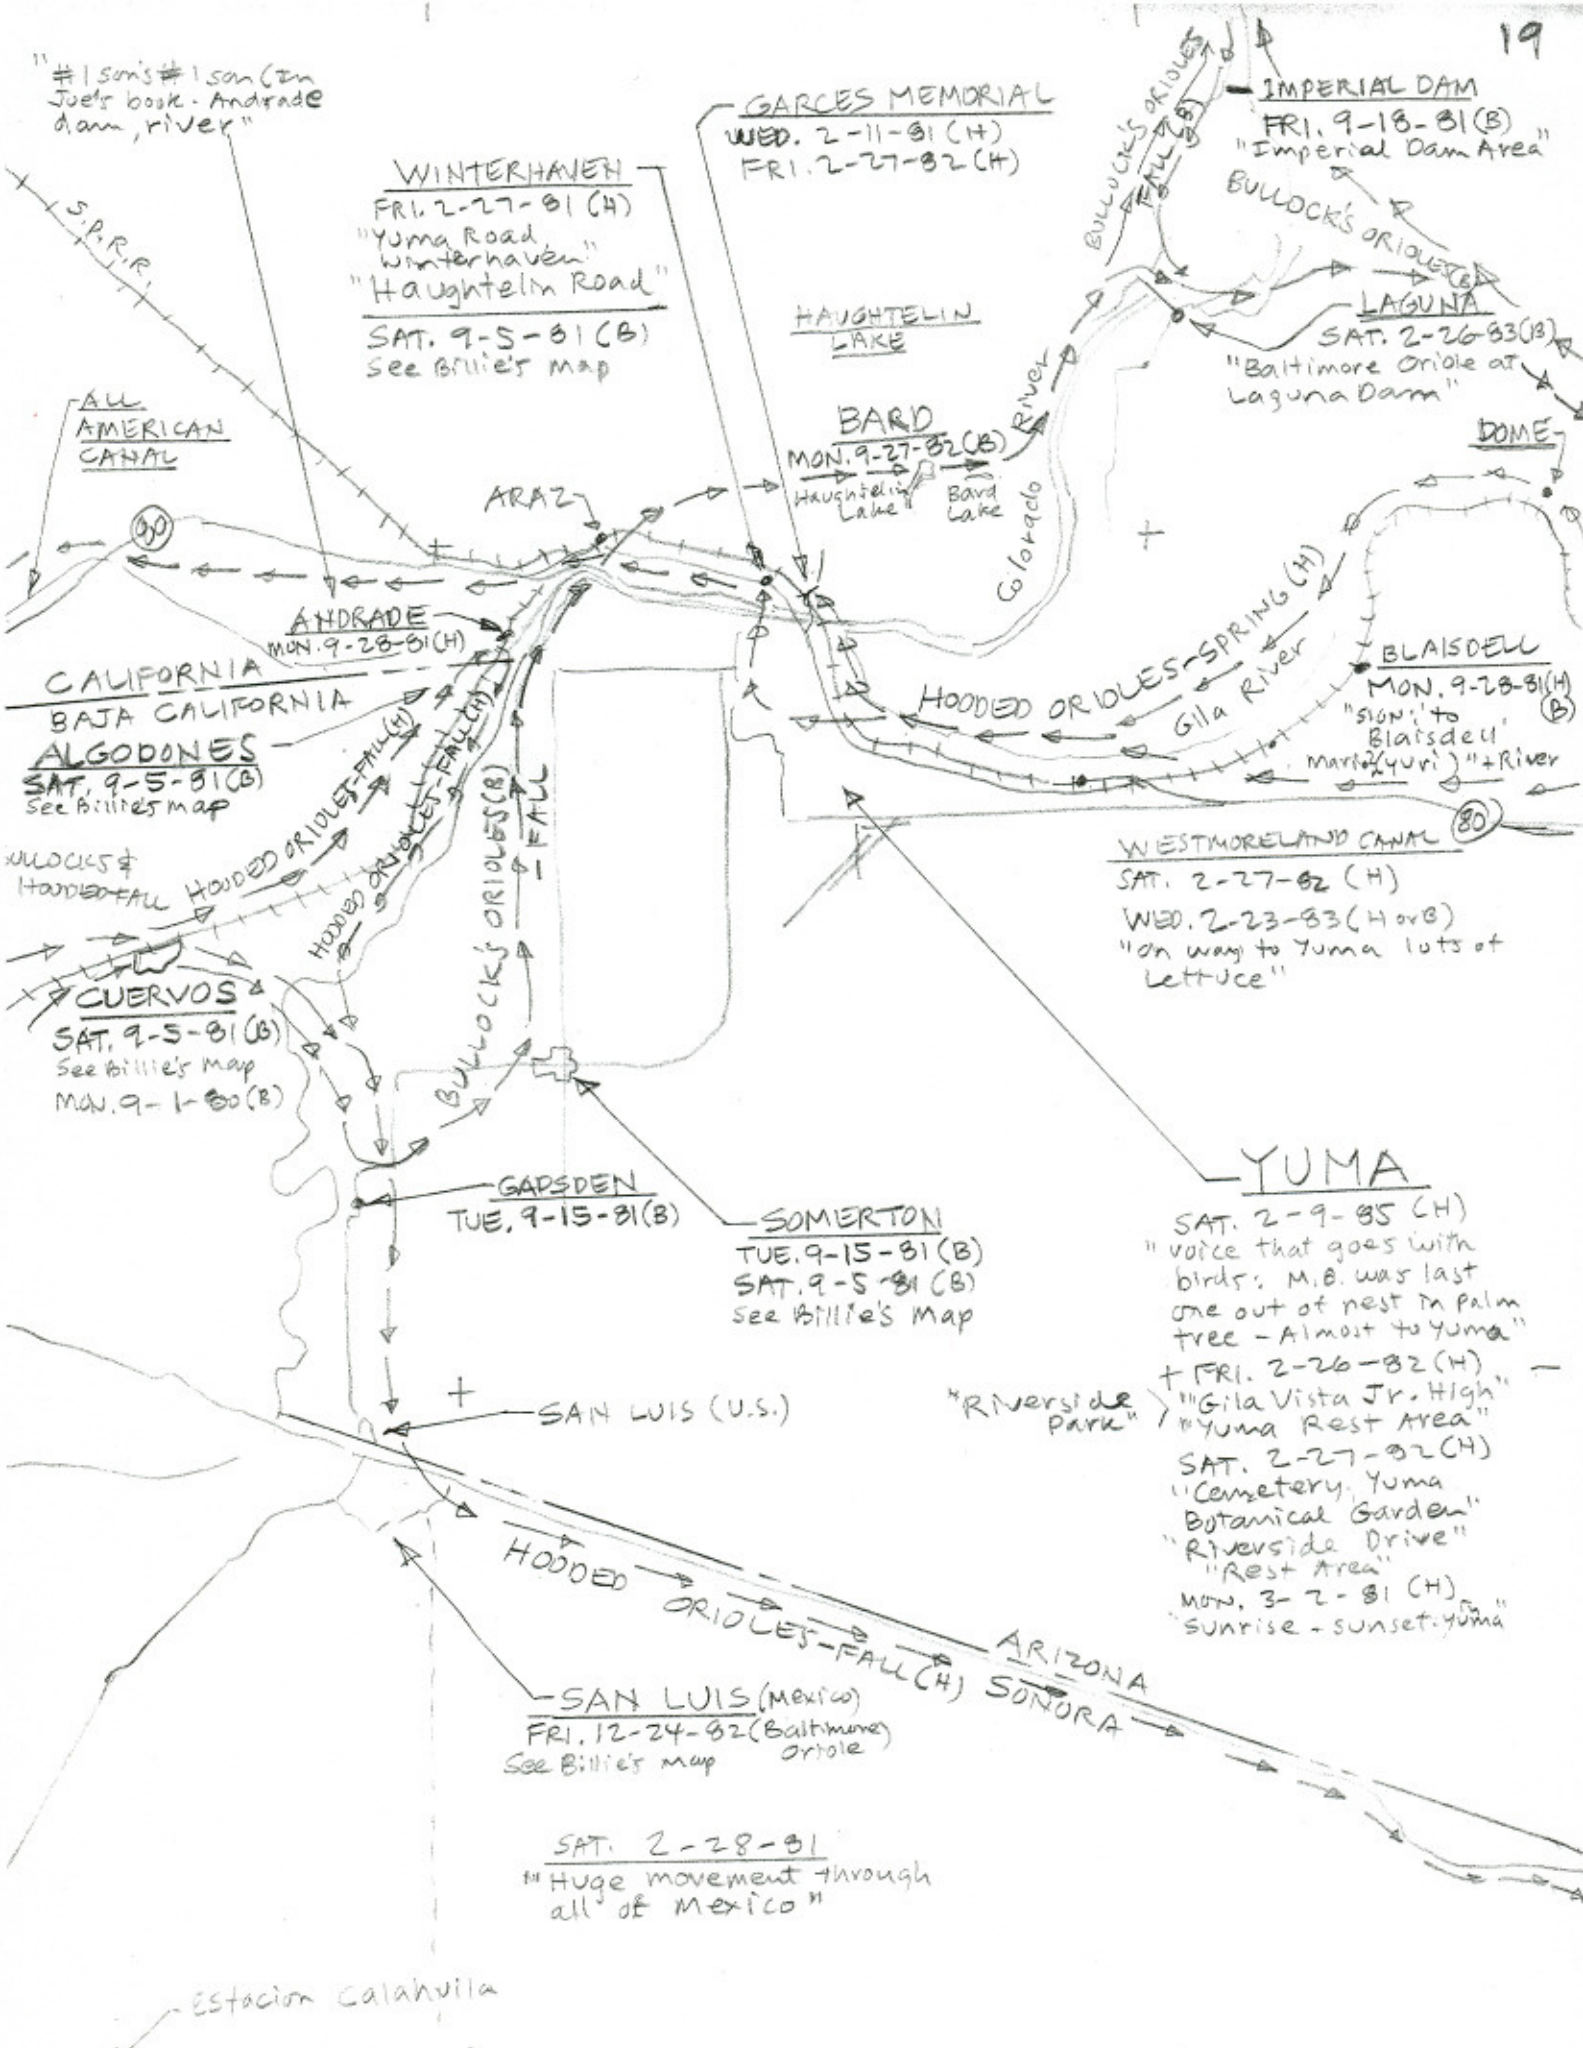 19
"#1 son's #1 son (In
Joe's book - Andrade
dam, river"
S.P.R.R.
WINTERHAVEN
FRI. 2-27-81 (H)
"Yuma Road,
Winterhaven"
"Haughtelin Road"
SAT. 9-5-81 (B)
See Billie's Map
GARCES MEMORIAL
WED. 2-11-81 (H)
FRI. 2-27-82 (H)
BULLOCK'S ORIOLES
FALL (B)
IMPERIAL DAM
FRI. 9-18-81 (B)
"Imperial Dam Area"
BULLOCK'S ORIOLES (B)
HAUGHTELIN
LAKE
LAGUNA
SAT. 2-26-83 (B)
"Baltimore Oriole at
Laguna Dam"
ALL
AMERICAN
CANAL
BARD
MON. 9-27-82 (B)
Haughtelin
Lake
Bard
Lake
Colorado River
DOME
ARAZ
80
ANDRADE
MON. 9-28-81 (H)
CALIFORNIA
BAJA CALIFORNIA
ALGODONES
SAT. 9-5-81 (B)
See Billie's Map
HOODED ORIOLES-SPRING (H)
Gila River
BLAISDELL
MON. 9-28-81 (H)
(B)
"SIGN: 'to
Blaisdell'
(yuri)" + River
80
HOODED ORIOLES-FALL (H)
HOODED ORIOLES-FALL (H)
BULLOCK'S ORIOLES (B)
-FALL
HOODED-FALL
WESTMORELAND CANAL
SAT. 2-27-82 (H)
WED. 2-23-83 (H or B)
"on way to Yuma lots of
Lettuce"
CUERVOS
SAT. 9-5-81 (B)
See Billie's Map
MON. 9-1-80 (B)
GADSDEN
TUE. 9-15-81 (B)
SOMERTON
TUE. 9-15-81 (B)
SAT. 9-5-81 (B)
See Billie's Map
YUMA
SAT. 2-9-85 (H)
"voice that goes with
birds: M.B. was last
one out of nest in palm
tree - Almost to Yuma"
+ FRI. 2-26-82 (H)
"Riverside
Park"
"Gila Vista Jr. High"
"Yuma Rest Area"
SAT. 2-27-82 (H)
"Cemetery, Yuma
Botanical Garden"
"Riverside Drive"
"Rest Area"
MON. 3-2-81 (H)
"Sunrise - sunset in Yuma"
SAN LUIS (U.S.)
HOODED ORIOLES-FALL (H)
ARIZONA
SONORA
SAN LUIS (Mexico)
FRI. 12-24-82 (Baltimore)
Oriole
See Billie's Map
SAT. 2-28-81
"Huge movement through
all of Mexico"
Estacion Calahuila